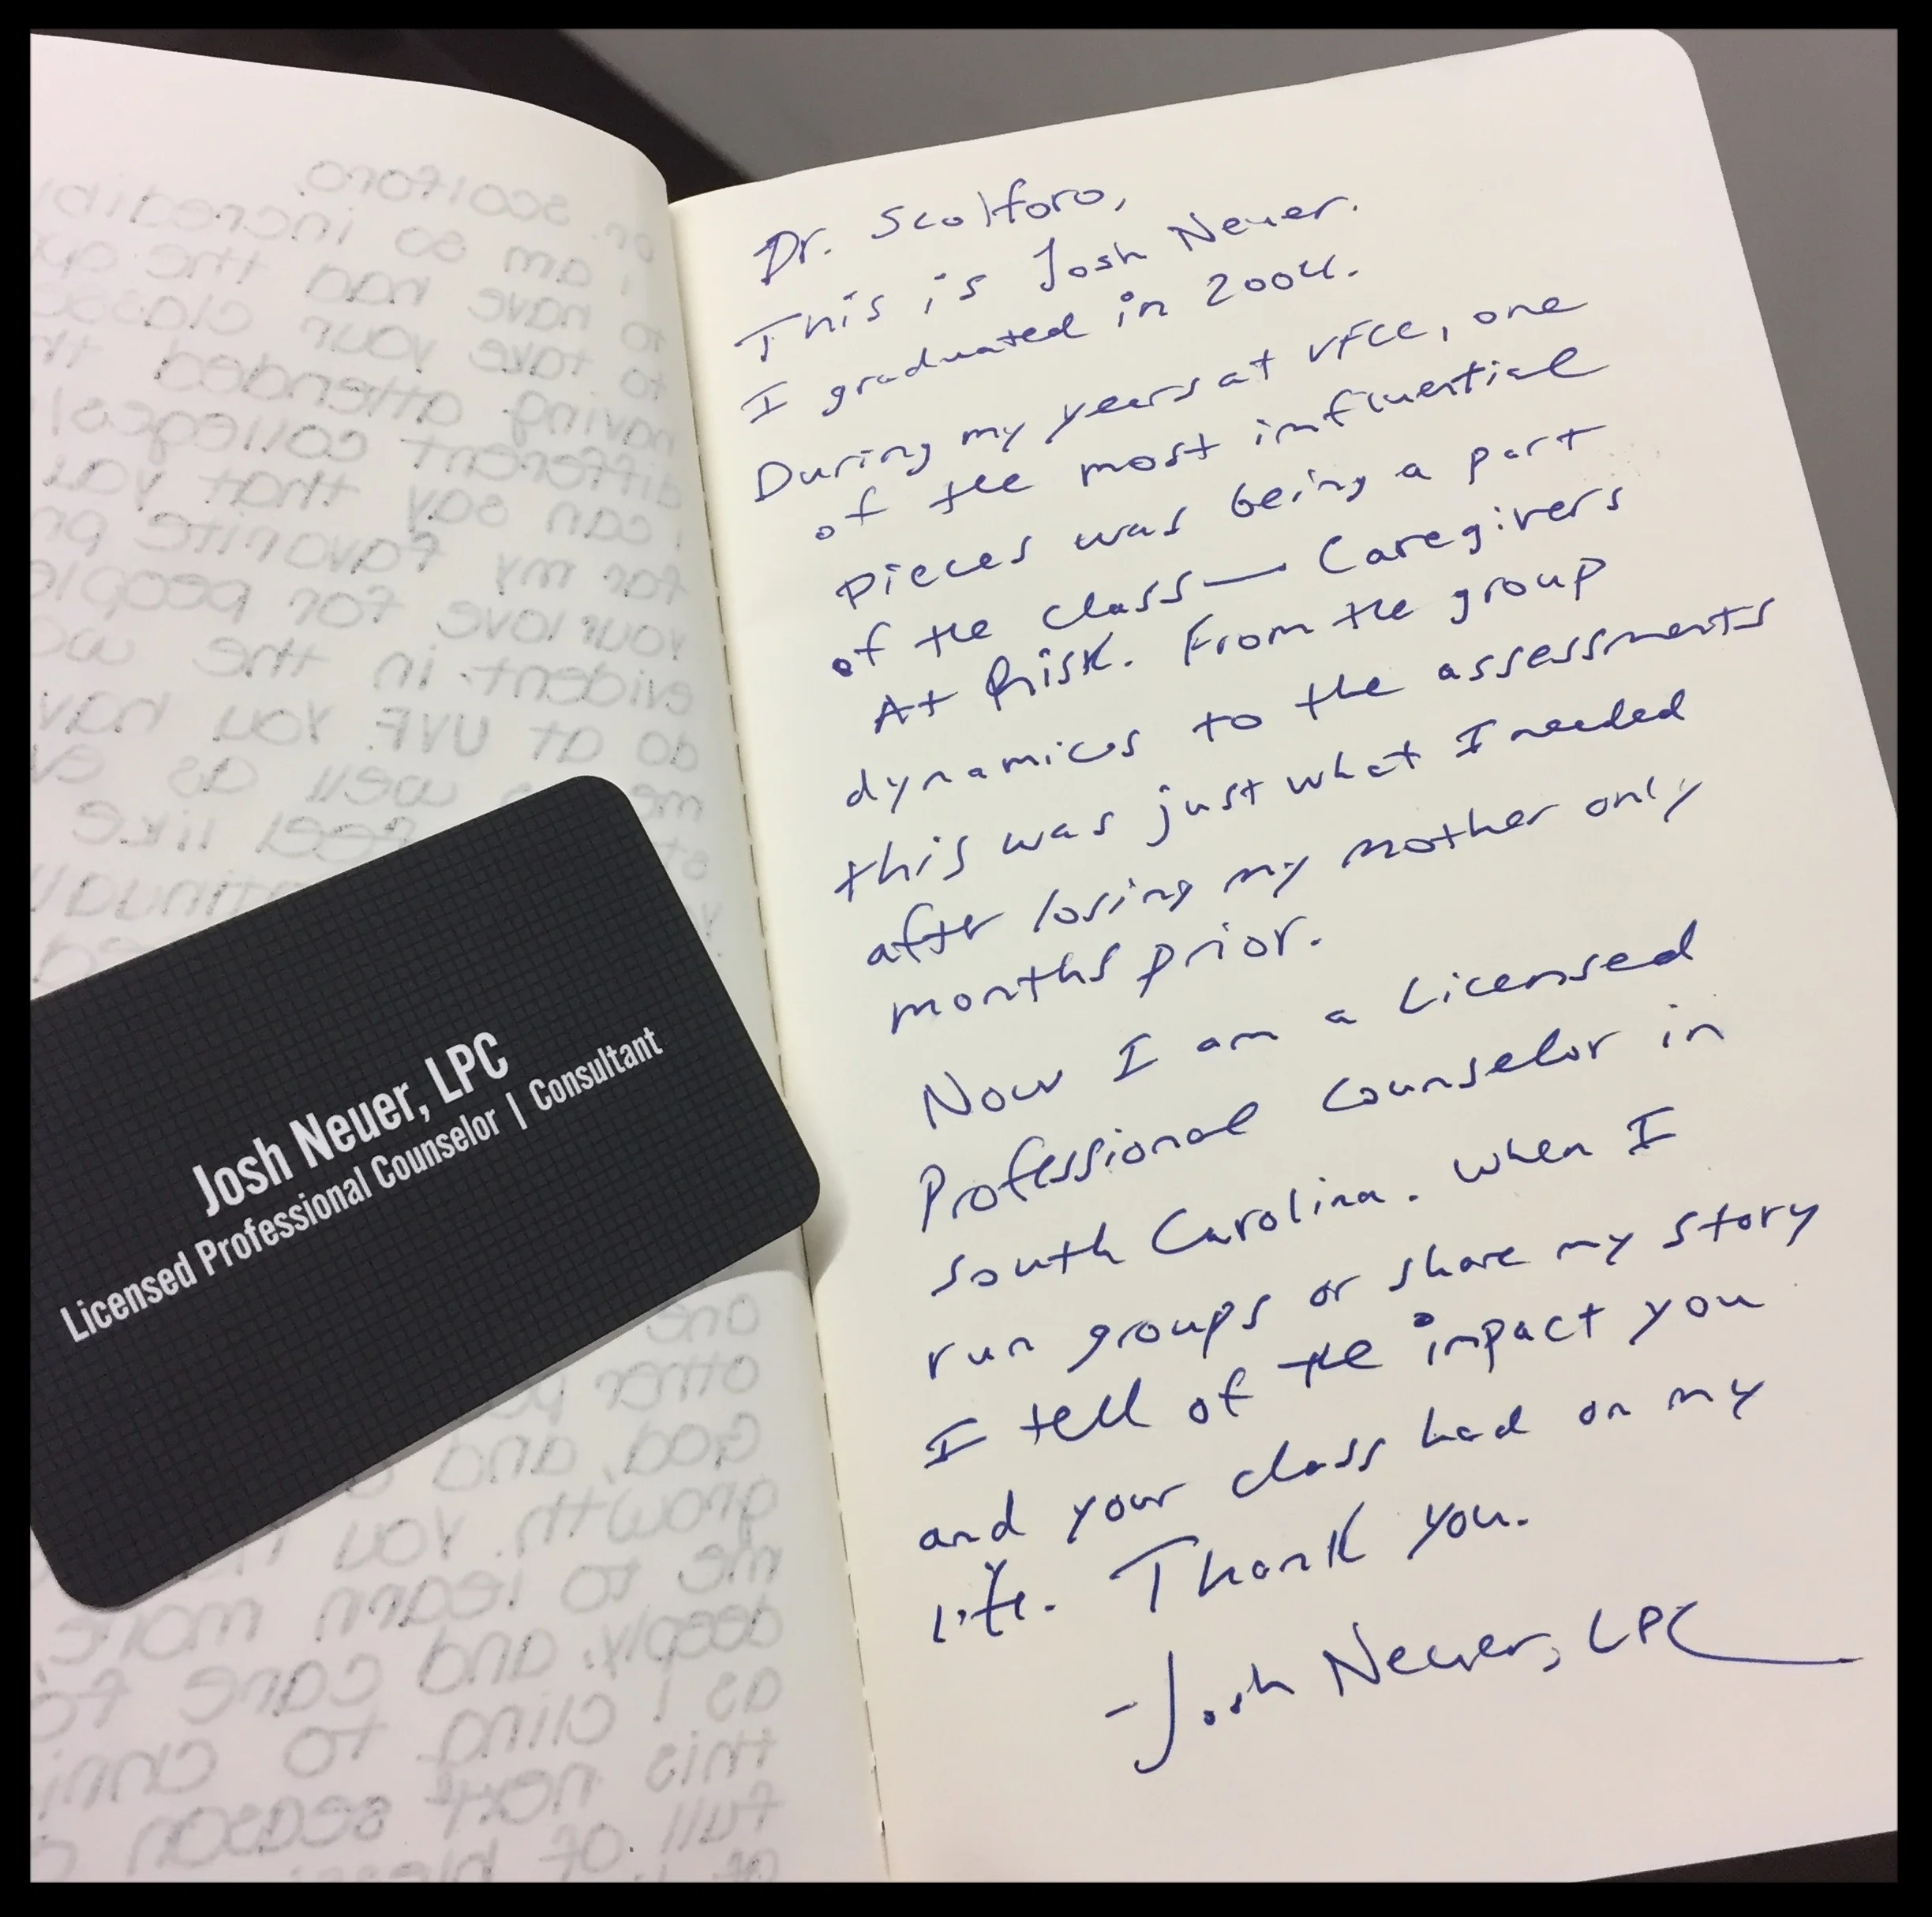 Josh Neuer, LPC
Licensed Professional Counselor | Consultant
Dr. Scolforo,
This is Josh Neuer.
I graduated in 2004.
During my years at VFCC, one
of the most influential
pieces was being a part
of the class— Caregivers
At Risk. From the group
dynamics to the assessments
this was just what I needed
after losing my mother only
months prior.
Now I am a Licensed
Professional Counselor in
South Carolina. When I
run groups or share my story
I tell of the impact you
and your class had on my
life. Thank you.
- Josh Neuer, LPC